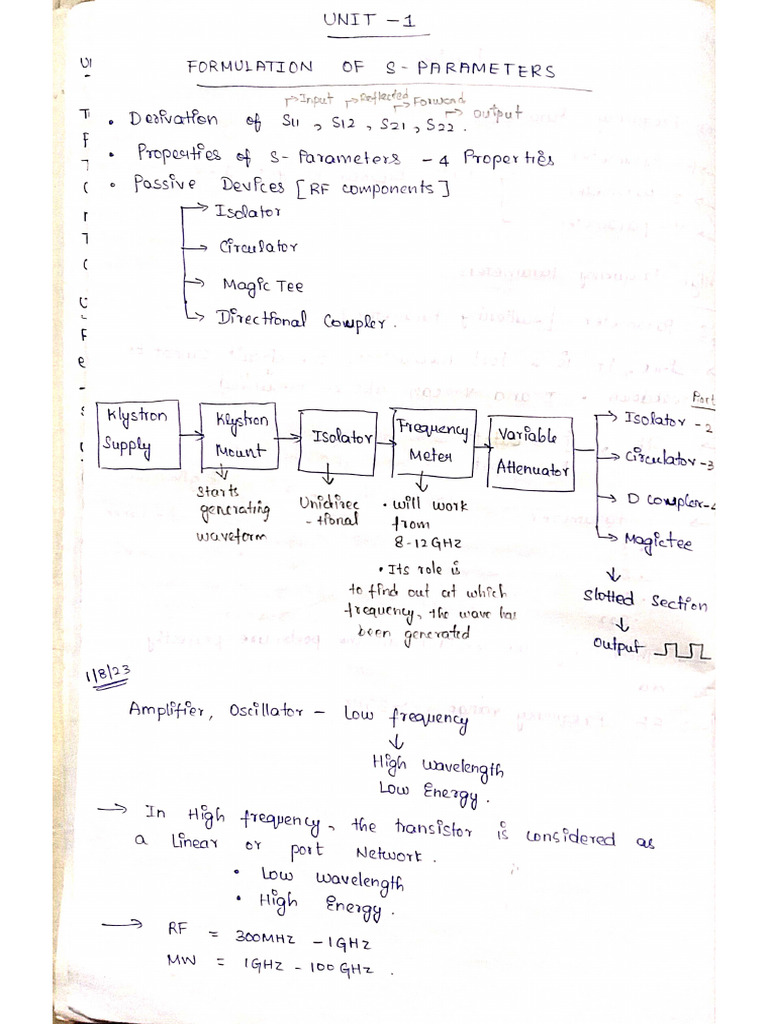 UNIT - 1
FORMULATION OF S-PARAMETERS
Input Reflected Forward Output
• Derivation of S11, S12, S21, S22.
• Properties of S-Parameters - 4 Properties
• Passive Devices [RF components]
Isolator
Circulator
Magic Tee
Directional Coupler.
Port
Klystron Supply
Klystron Mount
Isolator
Frequency Meter
Variable Attenuator
Isolator - 2
Circulator - 3
D Coupler - 4
Magictee
Starts
generating
waveform
Unidirec
-tional
• will work
from
8-12GHZ
• Its role is
to find out at which
frequency, the wave has
been generated
Slotted Section
Output
1/8/23
Amplifier, Oscillator - Low frequency
High wavelength
Low Energy.
→ In High frequency, the transistor is considered as
a Linear or port Network.
• Low wavelength
• High Energy.
→ RF = 300MHZ - 1GHZ
MW = 1GHZ - 100GHZ.